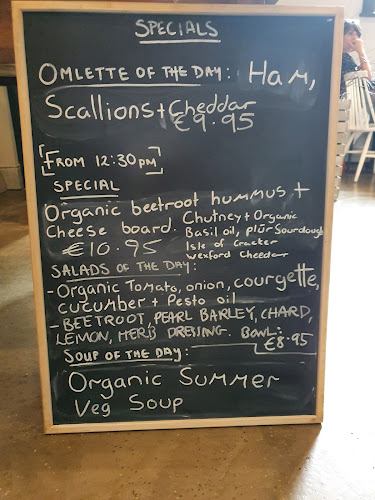 SPECIALS
OMLETTE OF THE DAY: HAM,
Scallions + Cheddar
€9.95
FROM 12:30pm
SPECIAL
Organic beetroot hummus +
Cheese board. Chutney + Organic
Basil oil, plúr Sourdough
€10.95 Isle of Cracker
Wexford Cheddar
SALADS OF THE DAY:
- Organic Tomato, onion, courgette,
cucumber + Pesto oil
- BEETROOT, PEARL BARLEY, CHARD,
LEMON, HERB DRESSING. BOWL:
€8.95
SOUP OF THE DAY:
Organic Summer
Veg Soup